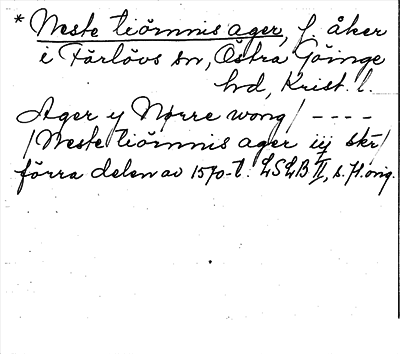 * Neste tiörnnis ager, f. åker
i Färlövs sn, Östra Göinge
hd, Krist. l.
Ager y Nørre wong / - - - -
/ Neste tiörnnis ager iij skr /
förra delen av 1570-t. LSLB II, s. 71. orig.